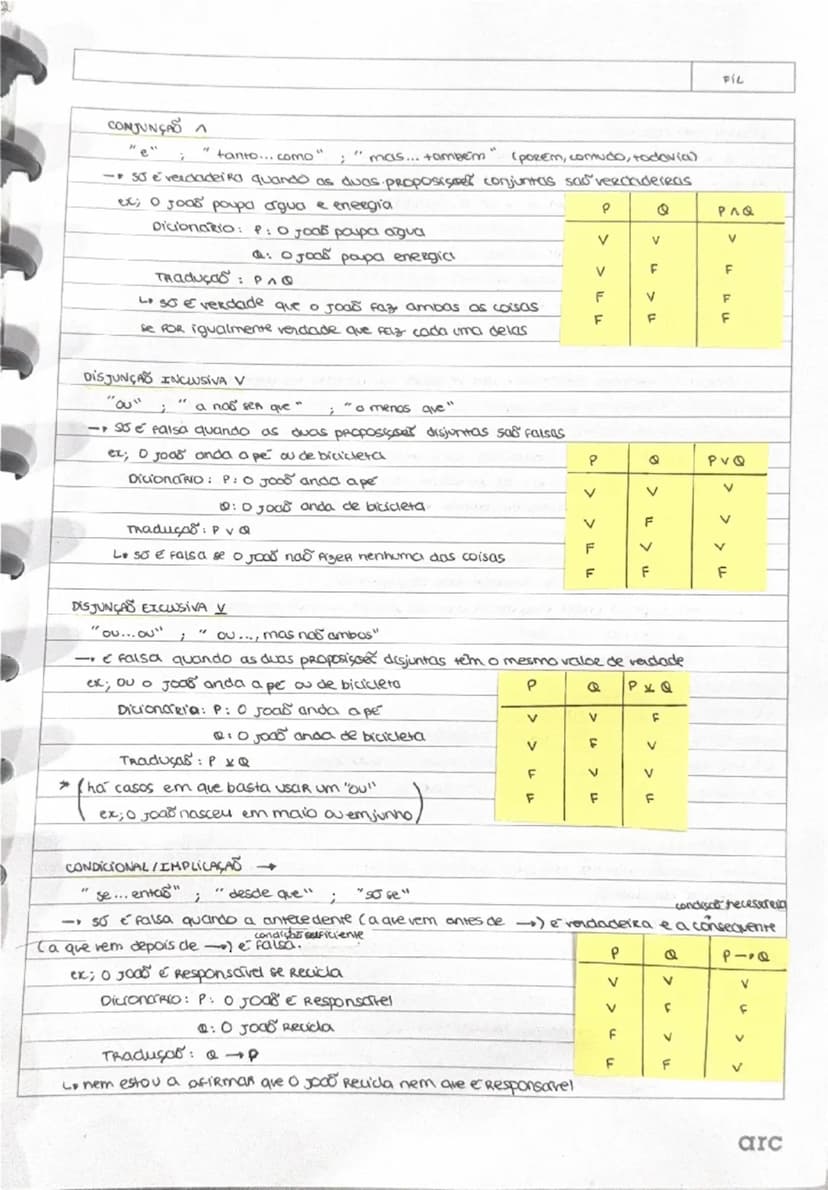 FIL
CONJUNÇÃO ∧
"e" ; "tanto...como" ; "mas...também" (porém, contudo, todavia)
→ só é verdadeira quando as duas proposições conjuntas são verdadeiras
ex; O João poupa água e energia
Dicionário: P: O João poupa água
Q: O João poupa energia
Tradução: P ∧ Q
↳ só é verdade que o João faz ambas as coisas
se for igualmente verdade que faz cada uma delas
P Q P∧Q
V V V
V F F
F V F
F F F
DISJUNÇÃO INCLUSIVA V
"ou" ; "a não ser que" ; "a menos que"
→ só é falsa quando as duas proposições disjuntas são falsas
ex; O João anda a pé ou de bicicleta
Dicionário: P: O João anda a pé
Q: O João anda de bicicleta
Tradução: P ∨ Q
↳ só é falsa se o João não fizer nenhuma das coisas
P Q P∨Q
V V V
V F V
F V V
F F F
DISJUNÇÃO EXCLUSIVA V̲
"ou...ou" ; "ou..., mas não ambos"
→ é falsa quando as duas proposições disjuntas têm o mesmo valor de verdade
ex; ou o João anda a pé ou de bicicleta
Dicionário: P: O João anda a pé
Q: O João anda de bicicleta
Tradução: P ⊻ Q
* (há casos em que basta usar um "ou"
ex; o João nasceu em maio ou em junho)
P Q P⊻Q
V V F
V F V
F V V
F F F
CONDICIONAL/IMPLICAÇÃO →
"se...então" ; "desde que" ; "só se"
condição necessária
→ só é falsa quando a antecedente (a que vem antes de →) é verdadeira e a consequente
condição suficiente
(a que vem depois de →) é falsa.
ex; O João é responsável se recicla
Dicionário: P: O João é responsável
Q: O João recicla
Tradução: Q → P
↳ nem estou a afirmar que o João recicla nem que é responsável
P Q P→Q
V V V
V F F
F V V
F F V
arc